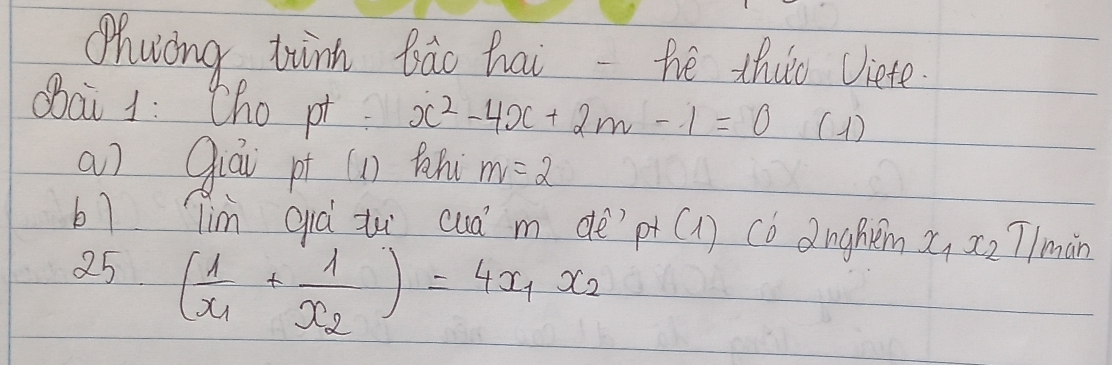 Phương trình bậc hai - hệ thức Viete.
Bài 1: Cho pt: x² - 4x + 2m - 1 = 0 (1)
a) Giải pt (1) khi m = 2
b) Tìm giá trị của m để pt (1) có 2 nghiệm x₁ x₂ T/mãn
25 (1/x₁ + 1/x₂) = 4x₁ x₂